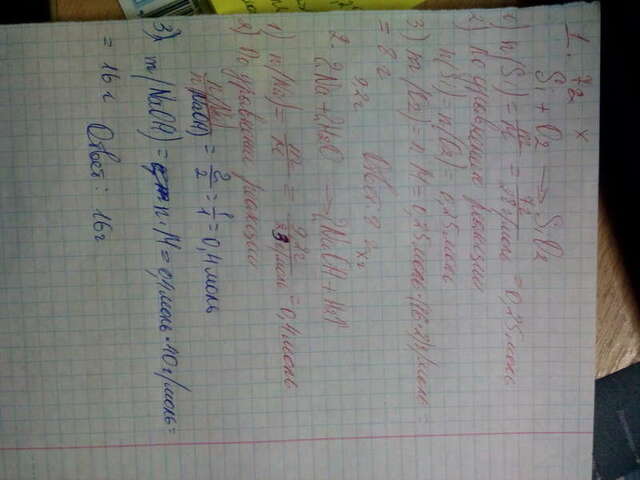 1. 7г x
Si + O2 → SiO2
1) n(Si) = m/M = 7г/28г/моль = 0,25 моль
2) По уравнению реакции
n(Si) = n(O2) = 0,25 моль
3) m(O2) = n·M = 0,25 моль·(16·2)г/моль =
= 8 г Ответ:
9,2г xг
2. 2Na + 2H2O → 2NaOH + H2↑
1) n(Na) = m/M = 9,2г/23г/моль = 0,4 моль
2) По уравнению реакции
n(Na)/n(NaOH) = 2/2 = 1/1 = 0,4 моль
3) m(NaOH) = n·M = 0,4 моль·40г/моль =
= 16г Ответ: 16г